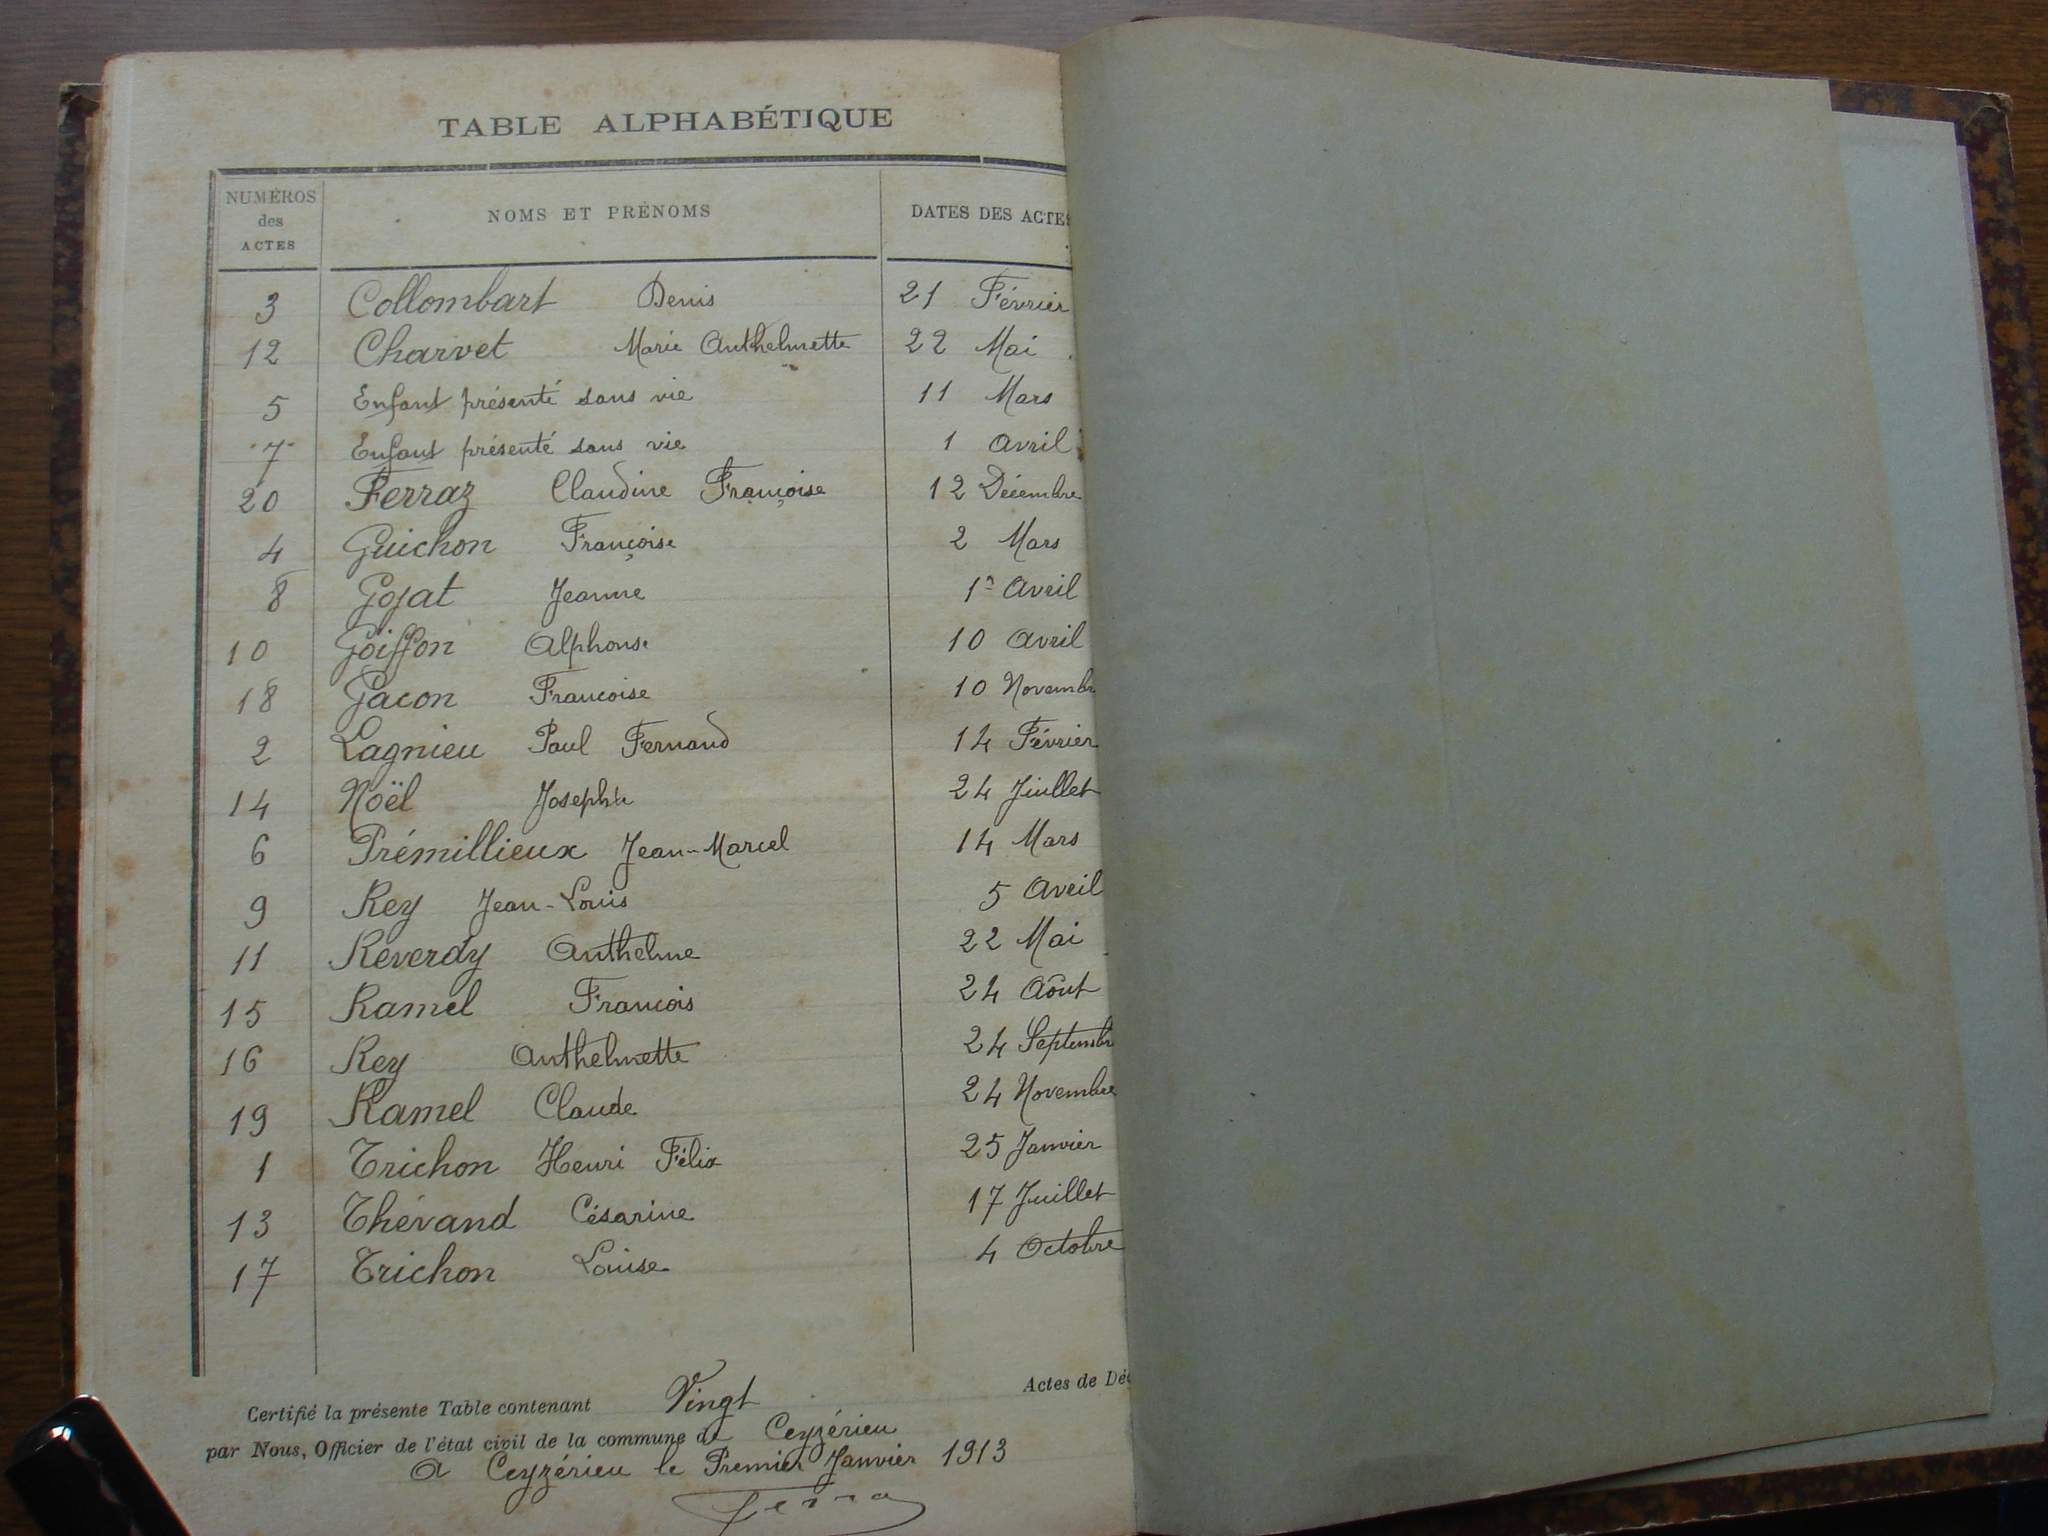 TABLE ALPHABÉTIQUE
NUMÉROS des ACTES NOMS ET PRÉNOMS DATES DES ACTES
3 Collombart Denis 21 Février
12 Charvet Marie Anthelmette 22 Mai
5 Enfant présenté sans vie 11 Mars
7 Enfant présenté sans vie 1 Avril
20 Ferraz Claudine Françoise 12 Décembre
4 Guichon Françoise 2 Mars
8 Gojat Jeanne 1er Avril
10 Goiffon Alphonse 10 Avril
18 Gacon Francoise 10 Novembr
2 Lagnieu Paul Fernand 14 Février
14 Noël Josephte 24 Juillet
6 Prémillieux Jean-Marcel 14 Mars
9 Rey Jean-Louis 5 Avril
11 Reverdy Anthelme 22 Mai
15 Ramel Francois 24 Août
16 Rey Anthelmette 24 Septembr
19 Ramel Claude 24 Novembre
1 Trichon Henri Félix 25 Janvier
13 Thévand Césarine 17 Juillet
17 Trichon Louise 4 Octobre
Certifié la présente Table contenant Vingt Actes de Déc
par Nous, Officier de l'état civil de la commune de Ceyzérieu
A Ceyzérieu le Premier Janvier 1913